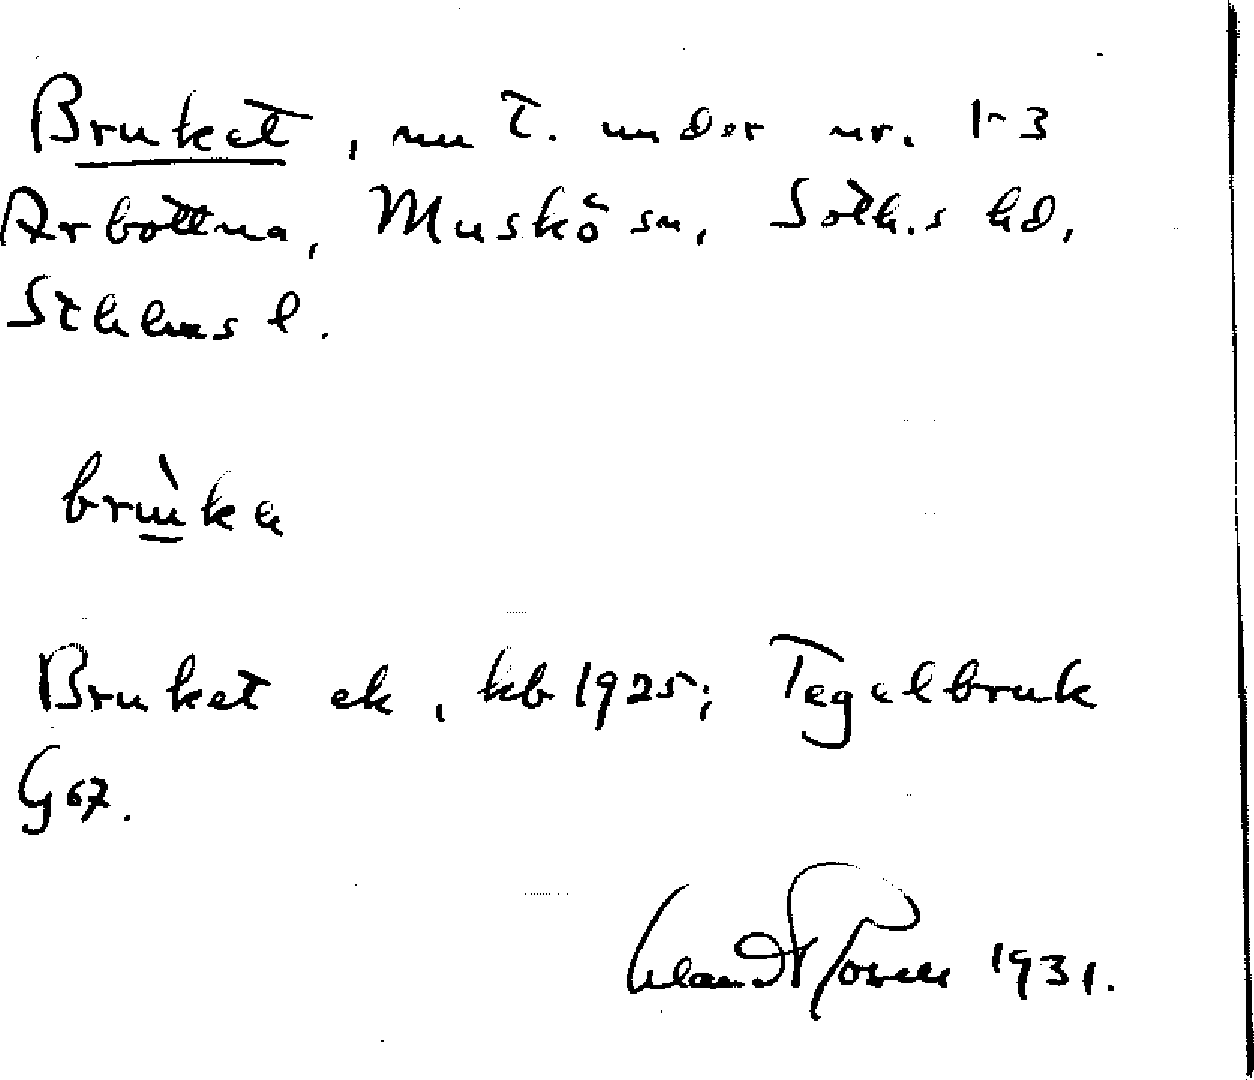 Bruket, nu t. under nr. 1-3
Arbottna, Muskö sn, Soth.s hd,
Sthlms l.
brùka
Bruket ek, kb 1925; Tegelbruk
G 67.
1931.